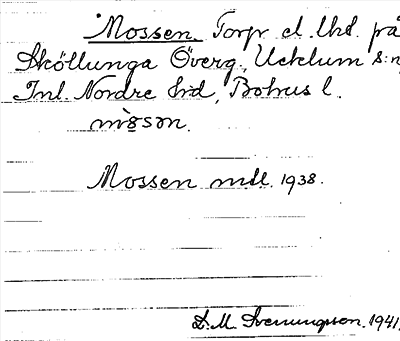 Mossen. Torpr el. lhd. på
Sköllunga Överg., Ucklum s:n
Inl. Nordre hd, Bohus l.
mòsən.
Mossen mtl. 1938.
D. M. Svenungsson. 1941.